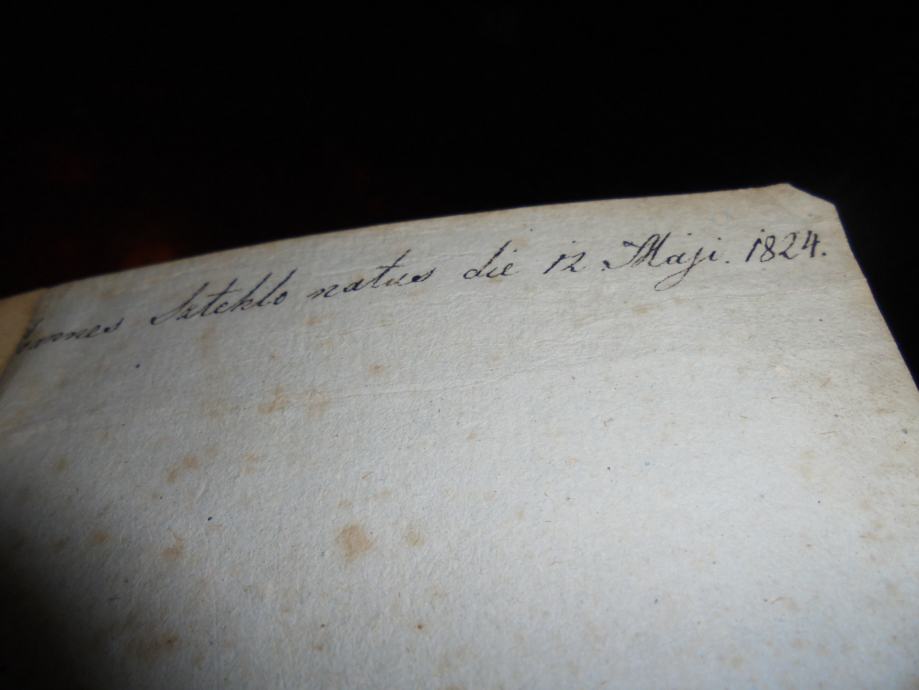 Joannes Sztehlo natus die 12. Maji. 1824.